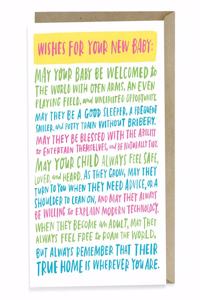 WISHES FOR YOUR NEW BABY:
MAY YOUR BABY BE WELCOMED to
THE WORLD WITH OPEN ARMS, AN EVEN
PLAYING FIELD, AND UNLIMITED OPPORTUNITY.
MAY THEY BE A GOOD SLEEPER, A FREQUENT
SMILER, AND POTTY TRAIN WITHOUT BRIBERY.
MAY THEY BE BLESSED WITH THE ABILITY
to ENTERTAIN THEMSELVES, AND BE NATURALLY FUNNY.
MAY YOUR CHILD ALWAYS FEEL SAFE,
LOVED, AND HEARD. AS THEY GROW, MAY THEY
TURN TO YOU WHEN THEY NEED ADVICE, OR A
SHOULDER TO LEAN ON, AND MAY THEY ALWAYS
BE WILLING to EXPLAIN MODERN TECHNOLOGY.
WHEN THEY BECOME AN ADULT, MAY THEY
ALWAYS FEEL FREE to ROAM THE WORLD,
BUT ALWAYS REMEMBER THAT THEIR
TRUE HOME IS WHEREVER YOU ARE.